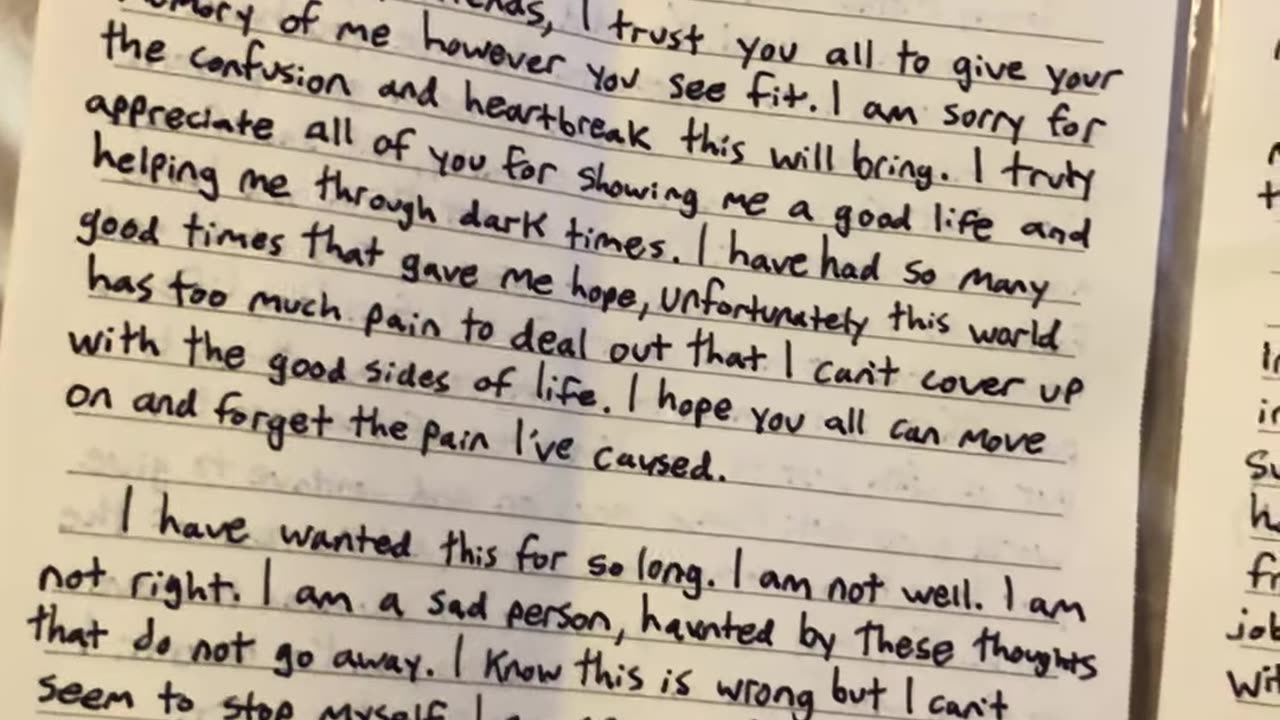 I trust you all to give your
memory of me however you see fit. I am sorry for
the confusion and heartbreak this will bring. I truly
appreciate all of you for showing me a good life and
helping me through dark times. I have had so many
good times that gave me hope, unfortunately this world
has too much pain to deal out that I can't cover up
with the good sides of life. I hope you all can move
on and forget the pain I've caused.
I have wanted this for so long. I am not well. I am
not right. I am a sad person, haunted by these thoughts
that do not go away. I know this is wrong but I can't
seem to stop myself. I
job